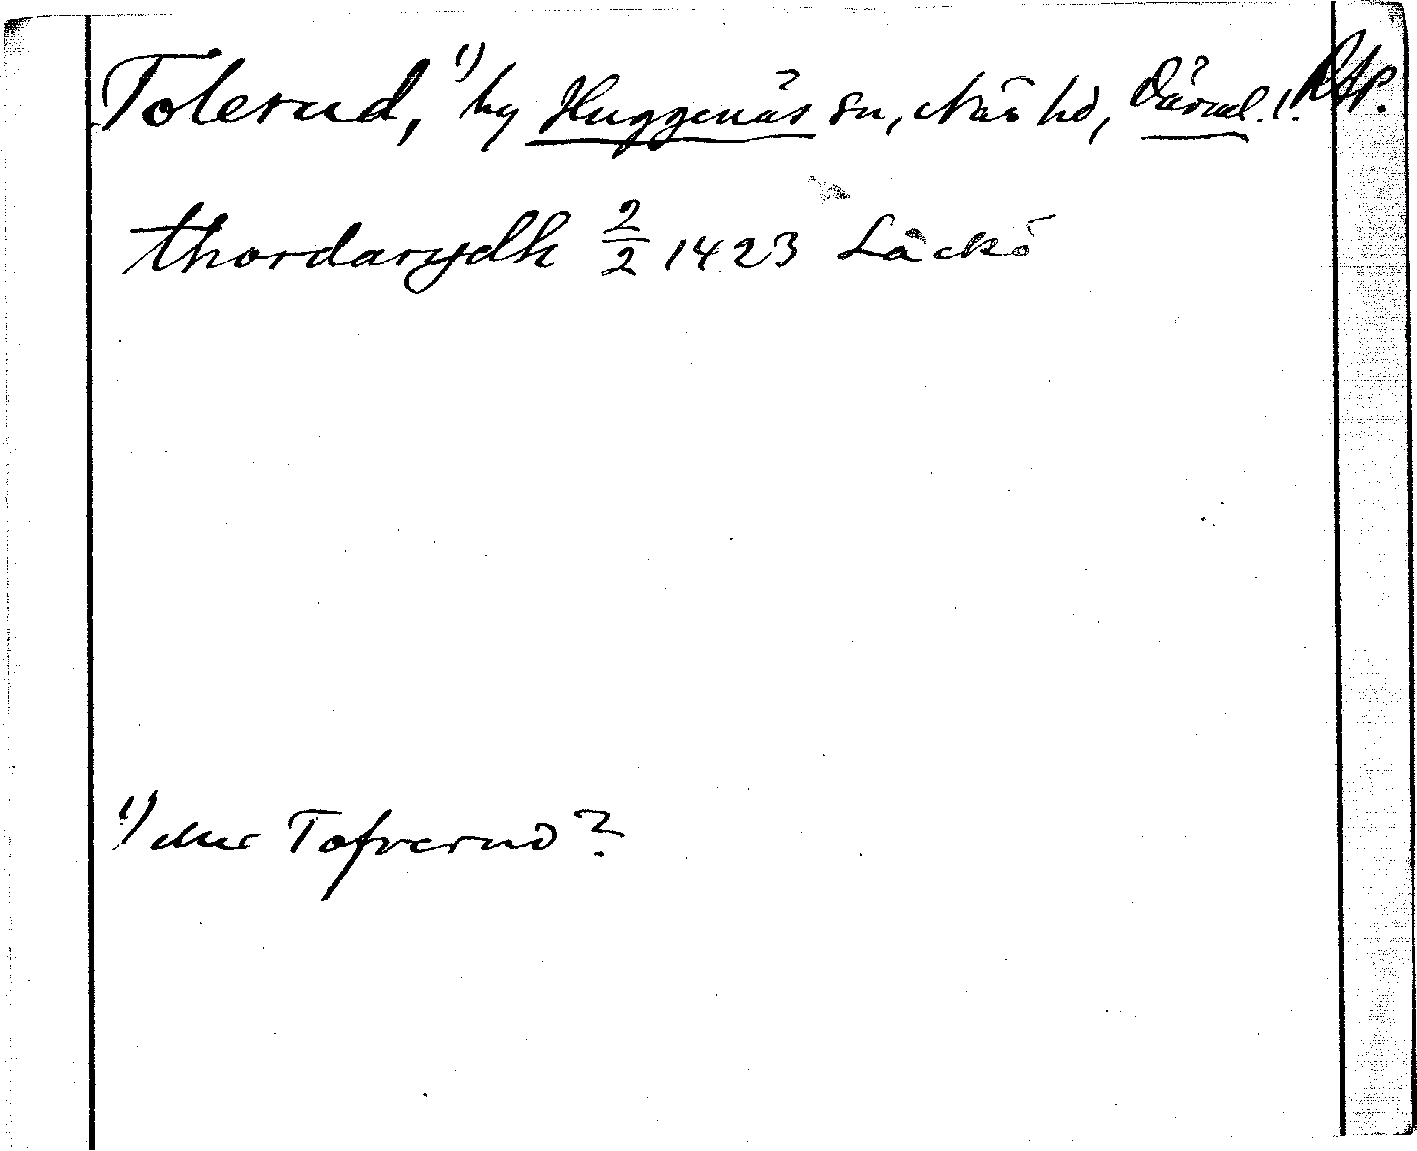 Tolerud, ¹) by Huggenäs sn, Näs hd, Värml. l. RAp.
thordarydh 2/2 1423 Läckö
¹) eller Tofverud?